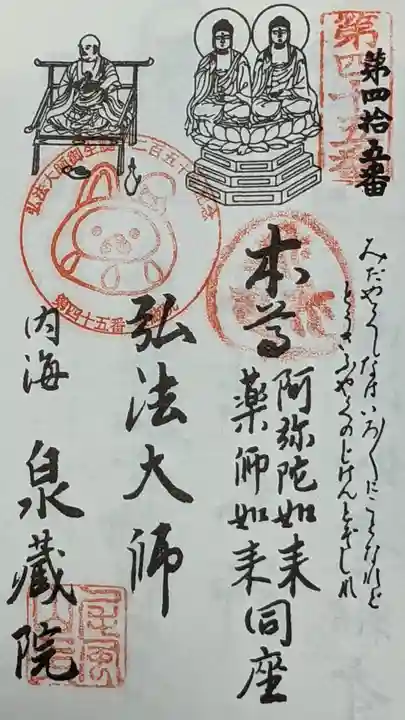 第四拾五番
第四十五番
みだやくしなはいろ〳〵にことなれど
とうさふやくのじげんとぞしれ
本尊
阿弥陀如来
薬師如来同座
弘法大師
内海
泉蔵院
弘法大師御生誕一千二百五十年記念
第四十五番